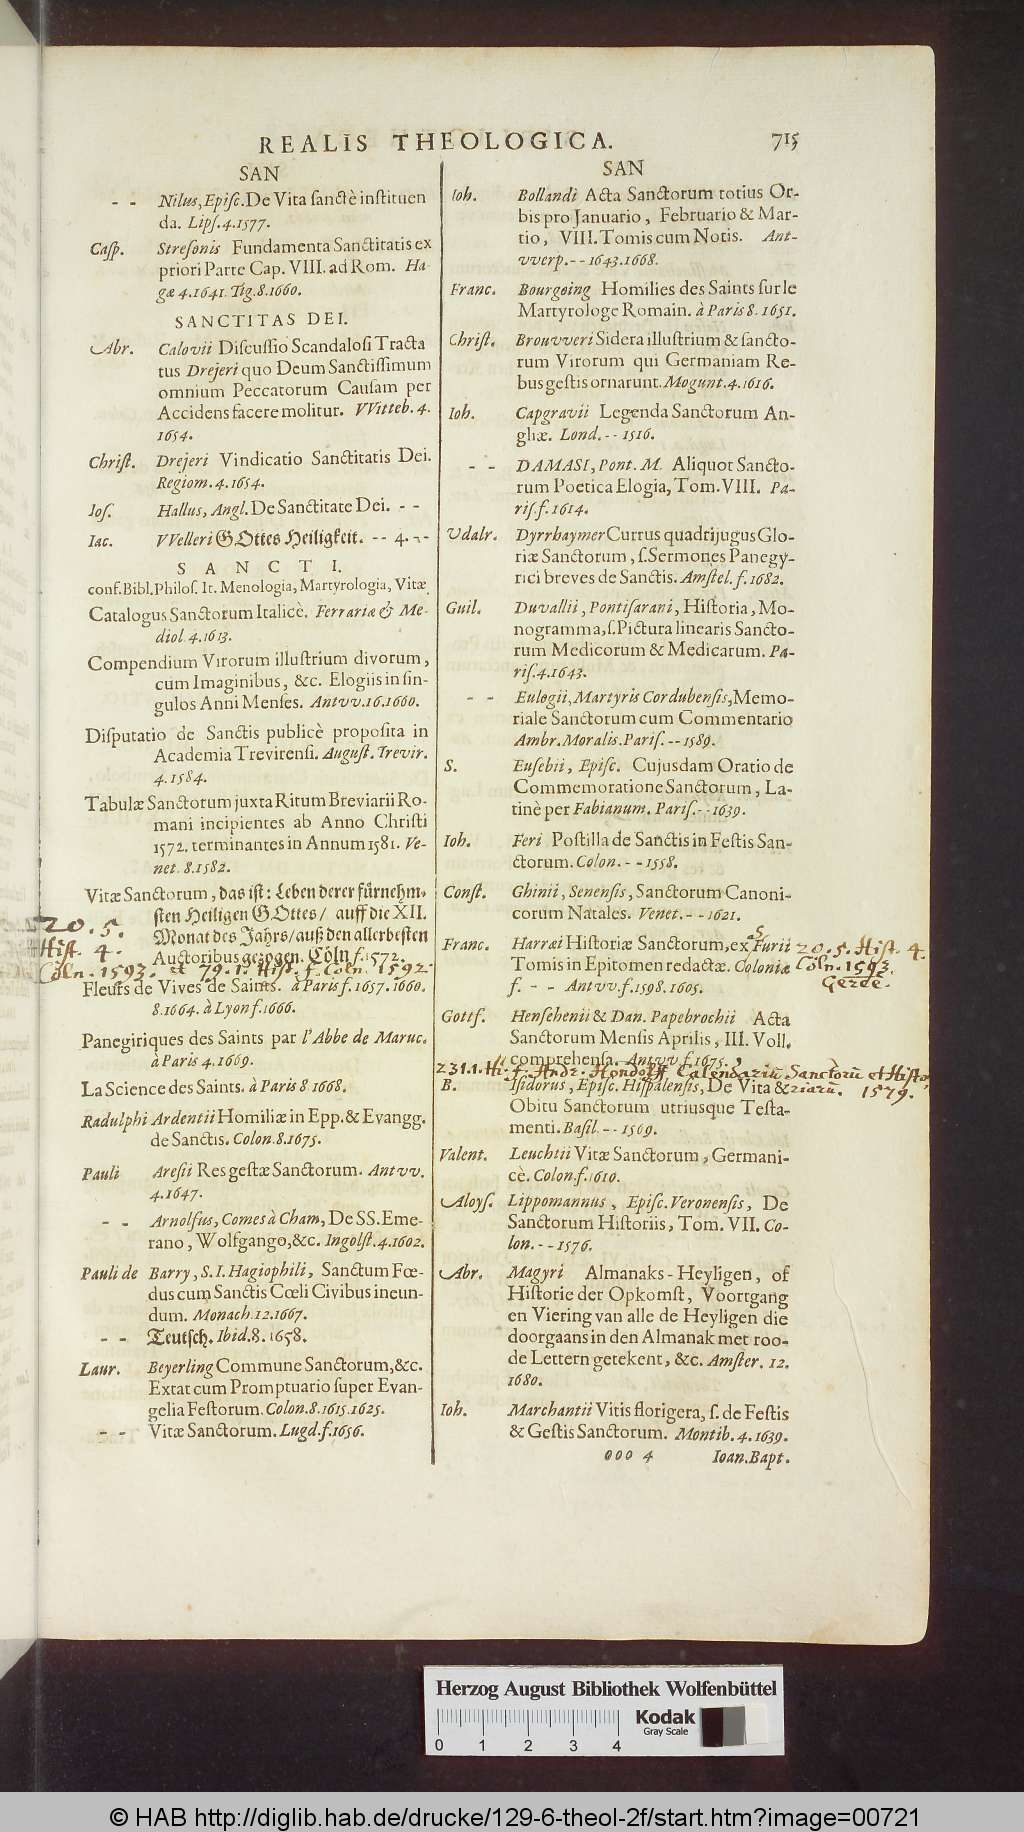 REALIS THEOLOGICA. 715
SAN
- - Nilus, Episc. De Vita sanctè instituen
da. Lips. 4. 1577.
Casp. Stresonis Fundamenta Sanctitatis ex
priori Parte Cap. VIII. ad Rom. Ha-
gæ 4. 1641. Tig. 8. 1660.
SANCTITAS DEI.
Abr. Calovii Discussio Scandalosi Tracta
tus Drejeri quo Deum Sanctissimum
omnium Peccatorum Causam per
Accidens facere molitur. VVitteb. 4.
1654.
Christ. Drejeri Vindicatio Sanctitatis Dei.
Regiom. 4. 1654.
Ios. Hallus, Angl. De Sanctitate Dei. - -
Iac. VVelleri GOttes Heiligkeit. -- 4. --
SANCTI.
conf. Bibl. Philos. It. Menologia, Martyrologia, Vitæ
Catalogus Sanctorum Italicè. Ferrariæ & Me-
diol. 4. 1613.
Compendium Virorum illustrium divorum,
cum Imaginibus, &c. Elogiis in sin-
gulos Anni Menses. Antvv. 16. 1660.
Disputatio de Sanctis publicè proposita in
Academia Trevirensi. August. Trevir.
4. 1584.
Tabulæ Sanctorum juxta Ritum Breviarii Ro-
mani incipientes ab Anno Christi
1572. terminantes in Annum 1581. Ve-
net. 8. 1582.
Vitæ Sanctorum, das ist: Leben derer fürnehm-
sten Heiligen GOttes / auff die XII.
20. 5.
Monat des Jahrs / auß den allerbesten
Hist. 4.
Auctoribus gezogen. Cöln f. 1572.
Cöln. 1593. et 79. 1. Hist. f. Cöln 1592.
Fleurs de Vives de Saints. à Paris f. 1657. 1660.
8. 1664. à Lyon f. 1666.
Panegiriques des Saints par l'Abbe de Maruc.
à Paris 4. 1669.
La Science des Saints. à Paris 8 1668.
Radulphi Ardentii Homiliæ in Epp. & Evangg.
de Sanctis. Colon. 8. 1675.
Pauli Aresii Res gestæ Sanctorum. Antvv.
4. 1647.
- - Arnolfus, Comes à Cham, De SS. Eme-
rano, Wolfgango, &c. Ingolst. 4. 1602.
Pauli de Barry, S. I. Hagiophili, Sanctum Fœ-
dus cum Sanctis Cœli Civibus ineun-
dum. Monach. 12. 1667.
- - Teutsch. Ibid. 8. 1658.
Laur. Beyerling Commune Sanctorum, &c.
Extat cum Promptuario super Evan-
gelia Festorum. Colon. 8. 1615. 1625.
- - Vitæ Sanctorum. Lugd. f. 1656.
SAN
Ioh. Bollandi Acta Sanctorum totius Or-
bis pro Januario, Februario & Mar-
tio, VIII. Tomis cum Notis. Ant-
vverp. - - 1643. 1668.
Franc. Bourgoing Homilies des Saints sur le
Martyrologe Romain. à Paris 8. 1651.
Christ. Brouvveri Sidera illustrium & sancto-
rum Virorum qui Germaniam Re-
bus gestis ornarunt. Mogunt. 4. 1616.
Ioh. Capgravii Legenda Sanctorum An-
gliæ. Lond. - - 1516.
- - DAMASI, Pont. M. Aliquot Sancto-
rum Poetica Elogia, Tom. VIII. Pa-
ris. f. 1614.
Udalr. Dyrrhaymer Currus quadrijugus Glo-
riæ Sanctorum, s. Sermones Panegy-
rici breves de Sanctis. Amstel. f. 1682.
Guil. Duvallii, Pontisarani, Historia, Mo-
nogramma, s. Pictura linearis Sancto-
rum Medicorum & Medicarum. Pa-
ris. 4. 1643.
- - Eulogii, Martyris Cordubensis, Memo-
riale Sanctorum cum Commentario
Ambr. Moralis. Paris. -- 1589.
S. Eusebii, Episc. Cujusdam Oratio de
Commemoratione Sanctorum, La-
tinè per Fabianum. Paris. - - 1639.
Ioh. Feri Postilla de Sanctis in Festis San-
ctorum. Colon. - - 1558.
Const. Ghinii, Senensis, Sanctorum Canoni-
corum Natales. Venet. - - 1621.
Franc. Harræi Historiæ Sanctorum, ex Furii
S
20. 5. Hist. 4.
Tomis in Epitomen redactæ. Coloniæ
Cöln. 1593.
f. - - Antvv. f. 1598. 1605.
Gerde.
Gottf. Henschenii & Dan. Papebrochii Acta
Sanctorum Mensis Aprilis, III. Voll.
comprehensa. Antvv f. 1675.
231. 1. Hi. f. Andr. Hondolff Calendariū Sanctorū et Histo
B. Isidorus, Episc. Hispalensis, De Vita &
riarū. 1579.
Obitu Sanctorum utriusque Testa-
menti. Basil. - - 1569.
Valent. Leuchtii Vitæ Sanctorum, Germani-
cè. Colon. f. 1610.
Aloys. Lippomannus, Episc. Veronensis, De
Sanctorum Historiis, Tom. VII. Co-
lon. - - 1576.
Abr. Magyri Almanaks-Heyligen, of
Historie der Opkomst, Voortgang
en Viering van alle de Heyligen die
doorgaans in den Almanak met roo-
de Lettern getekent, &c. Amster. 12.
1680.
Ioh. Marchantii Vitis florigera, s. de Festis
& Gestis Sanctorum. Montib. 4. 1639.
ooo 4 Ioan. Bapt.
Herzog August Bibliothek Wolfenbüttel
Kodak
Gray Scale
0 1 2 3 4
© HAB http://diglib.hab.de/drucke/129-6-theol-2f/start.htm?image=00721